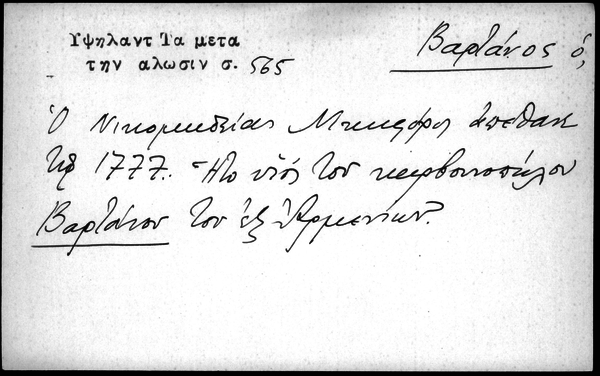 Υψηλαντ Τα μετα
την αλωσιν σ. 565
Βαρτάνος ὁ,
Ὁ Νικομηδείας Νικηφόρος ἀπέθανε
τῷ 1777. Ἦτο υἱός τοῦ καρβουνοπώλου
Βαρτάνου τοῦ ἐξ Ἀρμενίων.